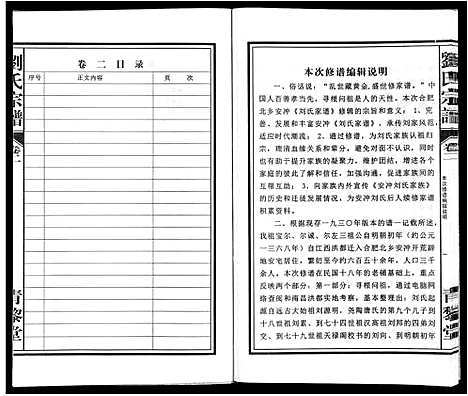 劉氏宗譜
卷二
本次修谱编辑说明
青黎堂
本次修谱编辑说明
一、俗话说：“乱世藏黄金，盛世修家谱。”中
国人百善孝当先，寻根问祖是人的天性。本次合肥
北乡安冲《刘氏家谱》修辑的宗旨和意义：1、完
善、发展和丰富安冲《刘氏家谱》，承传刘家风范
适应时代潮流；2、通过修谱，为刘氏家族认祖归
宗，理清血缘关系和辈分，避免对面不认识，同时
也有助于提升家族的凝聚力，维护团结，增进各支
的彼此了解和信任，加强沟通，促进家族间的互相
互帮互助；3、向家族内外宣传《安冲刘氏家族》
的历史和迁徙发展情况，为安冲刘氏后人续修家谱
积累资料。
二、根据现存一九三〇年版本的谱一记载所述，
我祖宝尔、诚尔、尔左三祖公自明朝初年（约公元
一三六八年）自江西洪都迁入合肥北乡安冲开荒辟
地安宅居住，繁衍至今约六百五十余年，人口三千
余人。本次修谱在民国十八年的老铺基础上，重点
反映两个部分：第一部分：寻根问祖，通过电脑网
络查阅和南昌洪都实地考察，基本整理出：刘氏起
源自远古大始祖刘源明，尧陶唐氏的第九个儿子到
十八世祖刘累、到七十四世祖汉高祖刘邦的四弟刘
交、到一百五十世祖天禄阁校书的刘向、到明朝初年
卷二目录
序号
正文内容
页次
劉氏宗譜
卷二
青黎堂